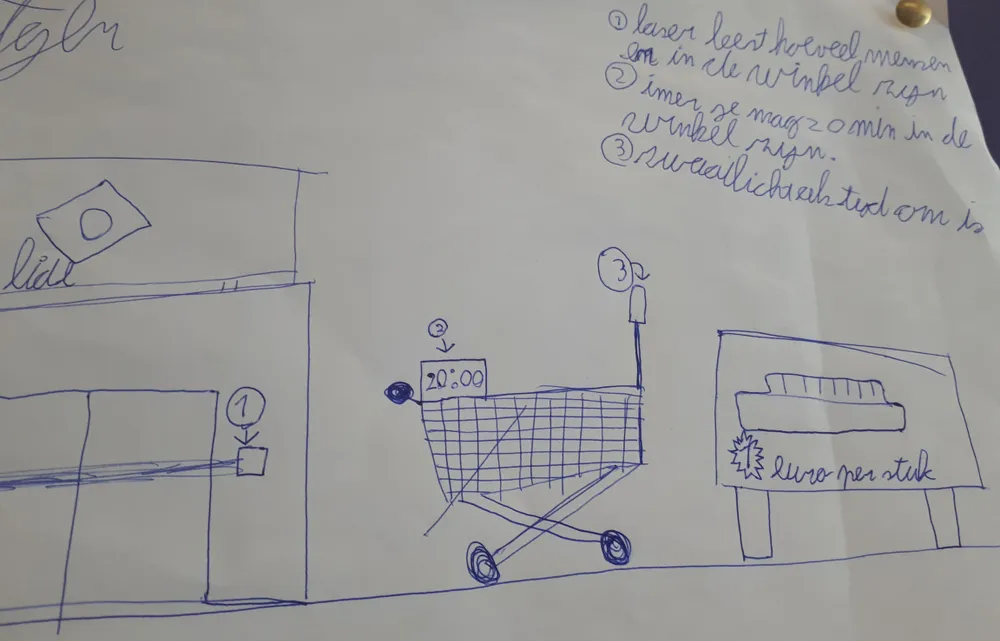 ① laser leest hoeveel mensen
en in de winkel zijn
② imer je mag 20 min in de
winkel zijn.
③ zwaailicht als tijd om is
lidl
③
②
20:00
①
1 euro per stuk